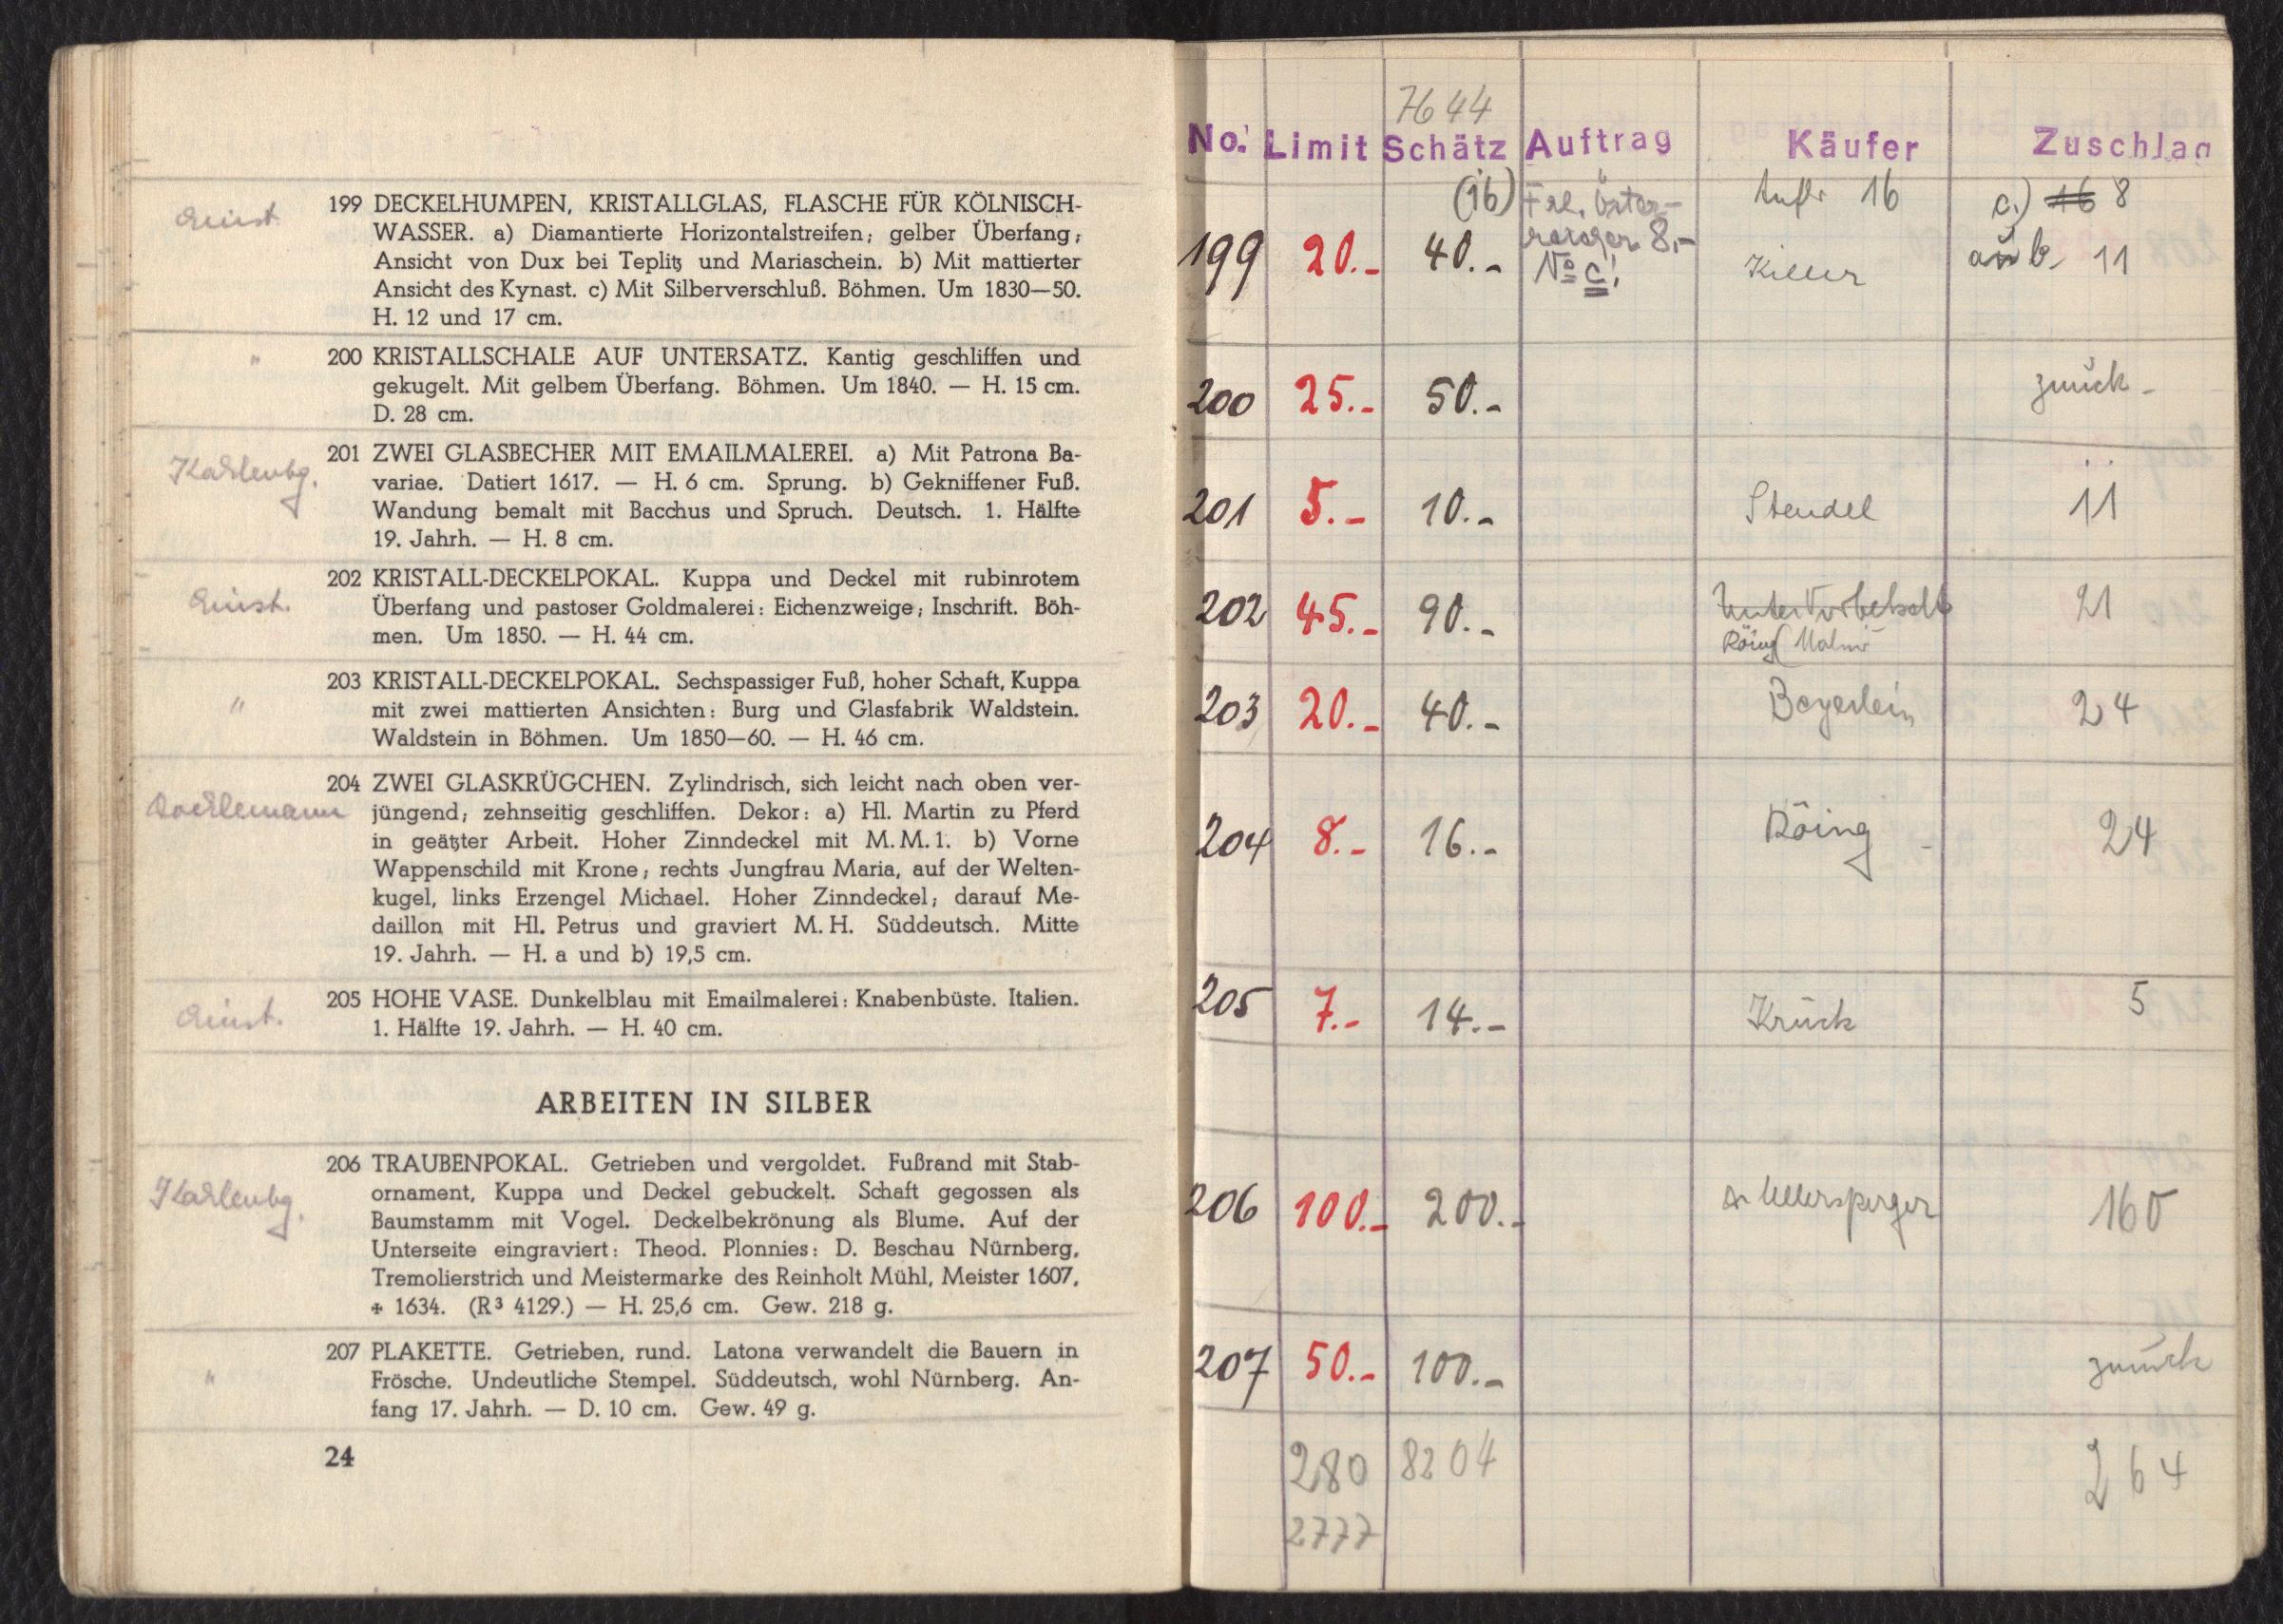 199 DECKELHUMPEN, KRISTALLGLAS, FLASCHE FÜR KÖLNISCH-
WASSER. a) Diamantierte Horizontalstreifen; gelber Überfang;
Ansicht von Dux bei Teplitz und Mariaschein. b) Mit mattierter
Ansicht des Kynast. c) Mit Silberverschluß. Böhmen. Um 1830—50.
H. 12 und 17 cm.
"
200 KRISTALLSCHALE AUF UNTERSATZ. Kantig geschliffen und
gekugelt. Mit gelbem Überfang. Böhmen. Um 1840. — H. 15 cm.
D. 28 cm.
201 ZWEI GLASBECHER MIT EMAILMALEREI. a) Mit Patrona Ba-
variae. Datiert 1617. — H. 6 cm. Sprung. b) Gekniffener Fuß.
Wandung bemalt mit Bacchus und Spruch. Deutsch. 1. Hälfte
19. Jahrh. — H. 8 cm.
202 KRISTALL-DECKELPOKAL. Kuppa und Deckel mit rubinrotem
Überfang und pastoser Goldmalerei: Eichenzweige; Inschrift. Böh-
men. Um 1850. — H. 44 cm.
"
203 KRISTALL-DECKELPOKAL. Sechspassiger Fuß, hoher Schaft, Kuppa
mit zwei mattierten Ansichten: Burg und Glasfabrik Waldstein.
Waldstein in Böhmen. Um 1850—60. — H. 46 cm.
204 ZWEI GLASKRÜGCHEN. Zylindrisch, sich leicht nach oben ver-
jüngend; zehnseitig geschliffen. Dekor: a) Hl. Martin zu Pferd
in geätzter Arbeit. Hoher Zinndeckel mit M. M. 1. b) Vorne
Wappenschild mit Krone; rechts Jungfrau Maria, auf der Welten-
kugel, links Erzengel Michael. Hoher Zinndeckel; darauf Me-
daillon mit Hl. Petrus und graviert M. H. Süddeutsch. Mitte
19. Jahrh. — H. a und b) 19,5 cm.
205 HOHE VASE. Dunkelblau mit Emailmalerei: Knabenbüste. Italien.
1. Hälfte 19. Jahrh. — H. 40 cm.
ARBEITEN IN SILBER
206 TRAUBENPOKAL. Getrieben und vergoldet. Fußrand mit Stab-
ornament, Kuppa und Deckel gebuckelt. Schaft gegossen als
Baumstamm mit Vogel. Deckelbekrönung als Blume. Auf der
Unterseite eingraviert: Theod. Plonnies: D. Beschau Nürnberg,
Tremolierstrich und Meistermarke des Reinholt Mühl, Meister 1607,
✠ 1634. (R³ 4129.) — H. 25,6 cm. Gew. 218 g.
"
207 PLAKETTE. Getrieben, rund. Latona verwandelt die Bauern in
Frösche. Undeutliche Stempel. Süddeutsch, wohl Nürnberg. An-
fang 17. Jahrh. — D. 10 cm. Gew. 49 g.
24
7644
No. Limit Schätz Auftrag Käufer Zuschlag
(16) 16 c.) 16 8
8.-
199 20.- 40.- No c! b. 11
200 25.- 50.- zurück -
201 5.- 10.- Stendel 11
202 45.- 90.- 21
Röing
203 20.- 40.- Beyerlein 24
204 8.- 16.- Röing 24
205 7.- 14.- Krück 5
206 100.- 200.- 160
207 50.- 100.- zurück
280 8204 264
2777